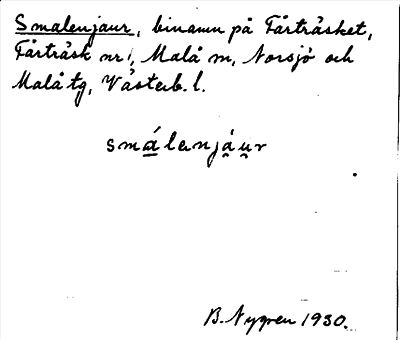 Smalenjaur, binamn på Fårträsket,
Fårträsk nr 1, Malå sn, Norsjö och
Malå tg, Västerb. l.
smálenjáu̯r
B. Nygren 1930.